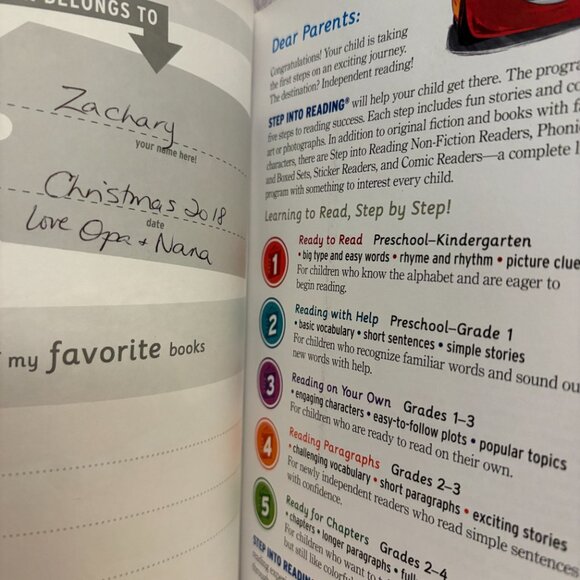 BELONGS TO
Zachary
your name here!
Christmas 2018
date
love Opa + Nana
my favorite books
Dear Parents:
Congratulations! Your child is taking
the first steps on an exciting journey.
The destination? Independent reading!
STEP INTO READING® will help your child get there. The
five steps to reading success. Each step includes fun stories and
art or photographs. In addition to original fiction and books with
characters, there are Step into Reading Non-Fiction Readers,
and Boxed Sets, Sticker Readers, and Comic Readers—a complete
program with something to interest every child.
Learning to Read, Step by Step!
1 Ready to Read Preschool–Kindergarten
• big type and easy words • rhyme and rhythm • picture
For children who know the alphabet and are eager to
begin reading.
2 Reading with Help Preschool–Grade 1
• basic vocabulary • short sentences • simple stories
For children who recognize familiar words and sound
new words with help.
3 Reading on Your Own Grades 1–3
• engaging characters • easy-to-follow plots • popular topics
For children who are ready to read on their own.
4 Reading Paragraphs Grades 2–3
• challenging vocabulary • short paragraphs • exciting stories
For newly independent readers who read simple sentences
with confidence.
5 Ready for Chapters Grades 2–4
• chapters • longer paragraphs •
For children who want to
but still like
STEP INTO READING